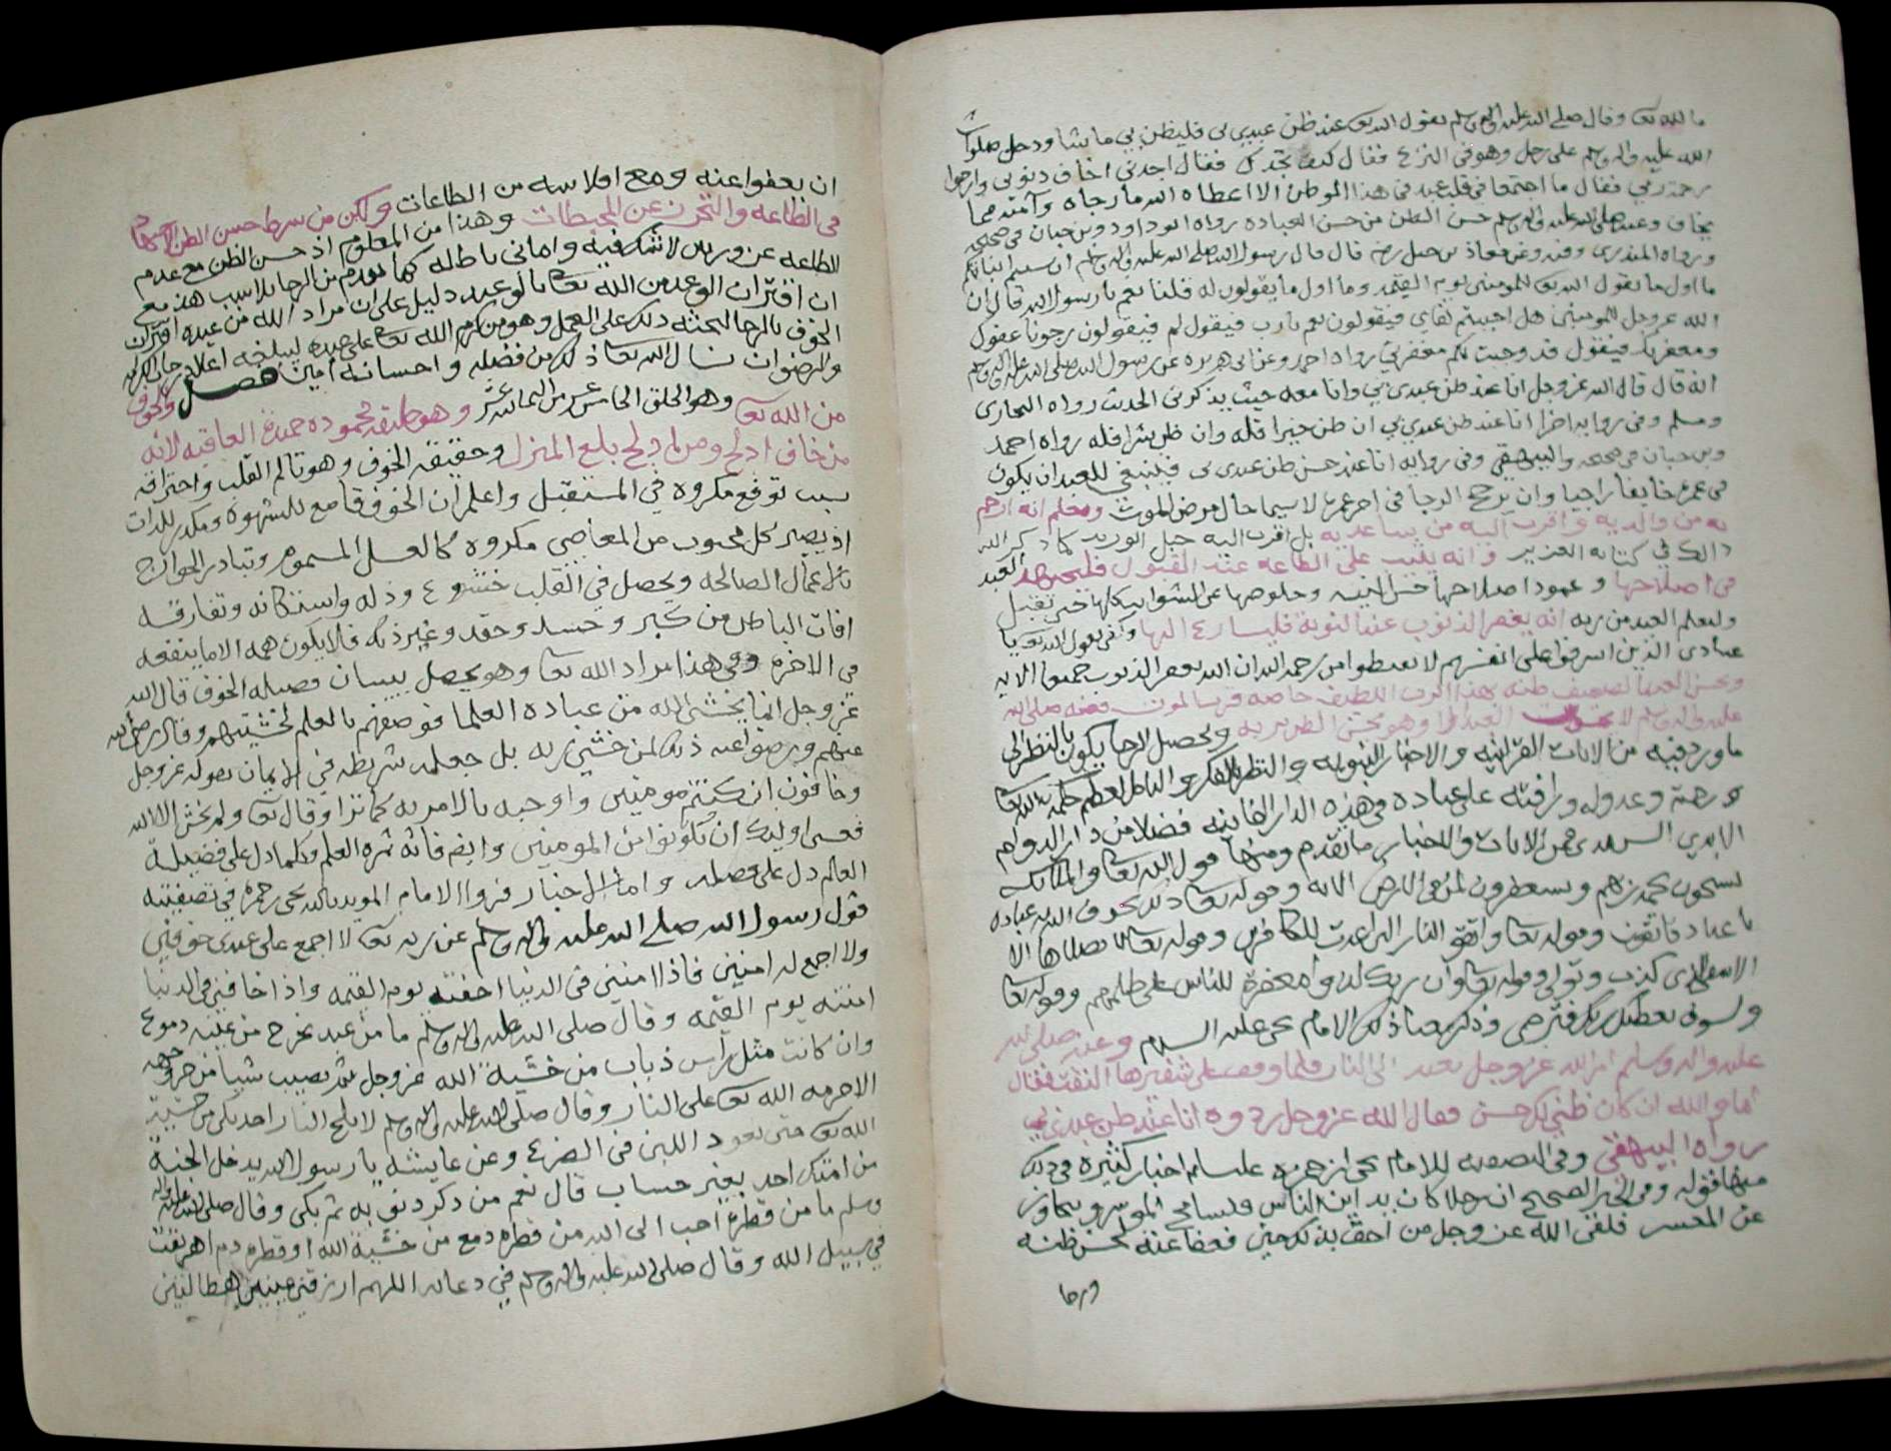 ما لله تعا وقال صلى الله عليه واله وسلم يقول الله تعا عند ظن عبدي بي فليظن بي ما شا ودخل صلوات
الله عليه واله وسلم على رجل وهو في النزع فقال كيف تجدك فقال اجدني اخاف ذنوبي وارجوا
رحمة ربي فقال ما اجتمعا في قلب عبد في هذا الموطن الا اعطاه الله ما رجاه وآمنه مما
يخاف وعنه صلى الله عليه واله وسلم حسن الظن من حسن العباده رواه ابو داود وبن حبان في صحيحه
ورواه المنذري وعن معاذ بن جبل رضي قال قال رسول الله صلى الله عليه واله وسلم ان سيتم انباتكم
ما اول ما يقول الله تعا للمومنين يوم القيمه وما اول ما يقولون له قلنا نعم يا رسول الله قال ان
الله عز وجل للمومنين هل احببتم لقاي فيقولون نعم يا رب فيقول لم فيقولون رجونا عفوك
ومغفرتك فيقول قد وجبت لكم مغفرتي رواه احمد وعن ابي هريره عن رسول الله صلى الله عليه واله وسلم
انه قال قال الله عز وجل انا عند ظن عبدي بي وانا معه حيث يذكرني الحديث رواه البخاري
ومسلم وفي روايه اخرا انا عند ظن عبدي بي ان ظن خيرا فله وان ظن شرا فله رواه احمد
وبن حبان في صحيحه والبيهقي وفي روايه انا عند حسن ظن عبدي بي فينبغي للعبد ان يكون
في عمره خايفا راجيا وان يرجح الرجا في اخر عمره لا سيما حال مرض الموت ومعلم انه ارحم
به من والديه واقرب اليه من يساعديه بل اقرب اليه حبل الوريد كما ذكر الله
ذالك في كتابه العزيز وانه يثيب على الطاعه عند القبول فليجتهد العبد
في اصلاحها وعمود اصلاحها حسن النيه وخلوصها عن الشوايب تقبل
وليعلم العبد من ربه انه يغفر الذنوب عند التوبة فليسارع اليها يقول الله تعا يا
عبادي الذين اسرفوا على انفسهم لا تقنطوا من رحمة الله ان الله يغفر الذنوب جميعا الايه
وبحسن العبد ظنه بهذا الرب اللطيف خاصه قرب الموت فعنه صلى الله
عليه واله وسلم لا يموتن العبد الا وهو يحسن الظن بربه ويحصل الرجا يكون بالنظر الى
ما ورد فيه من الايات القرانيه والاخبار النبويه والنظر بالفكر والتامل لعظم حكمة الله تعا
ورحمته وعدوله ورافته على عباده في هذه الدار الفانيه فضلا من دار الدوام
الابدي السرمدي من الايات والاخبار ما تقدم ومنها قول الله تعا والملائكه
يسبحون بحمد ربهم ويستغفرون لمن في الارض الايه وقوله تعا ذلك يخوف الله به عباده
يا عباد فاتقون وقوله تعا واتقوا النار التي اعدت للكافرين وقوله تعا لا يصلاها الا
الاشقى الذي كذب وتولى وقوله تعا وان ربك لذو مغفرة للناس على ظلمهم وقوله تعا
ولسوف يعطيك ربك فترضى وذكر معنا ذلك الامام يحى عليه السلام وعنه صلى الله
عليه واله وسلم امر الله عز وجل بعبد الى النار فلما وقف على شفيرها التفت فقال
أما والله ان كان ظني بك لحسن فقال الله عز وجل ردوه انا عند ظن عبدي بي
رواه البيهقي وفي التصفيه للامام يحى بن حمزه عليه السلام اخبار كثيره في ذلك
منها قوله وفي الخبر الصحيح ان رجلا كان يداين الناس فيسامح الموسر ويتجاوز
عن المعسر فلقي الله عز وجل من احق بذلك مني فعفا عنه لحسن ظنه
ورجا
ان يعفوا عنه ومع افلاسه من الطاعات ولكن من شرط حسن الظن
في الطاعه والتحرز عن المحبطات وهذا من المعلوم اذ حسن الظن مع عدم
الطاعه غرور لا شك فيه واماني باطله كما تقدم من الرجا بلا سبب هذا مع
ان اقتران الوعد من الله تعا بالوعيد دليل على ان مراد الله من عبده اقتران
الخوف بالرجا لحثه ذلك على العمل وهو من كرم الله تعا على عبده ليبلغه اعلا درجات الكرامه
والرضوان نسال الله تعا ذلك من فضله واحسانه امين فصل والخوف
من الله تعا وهو الخلق الخامس عشر من الثمانيه عشر وهو طريقه محموده حميدة العاقبه لانه
من خاف ادلج ومن ادلج بلغ المنزل وحقيقة الخوف وهو تالم القلب واحتراقه
بسبب توقع مكروه في المستقبل واعلم ان الخوف قامع للشهوة ومكدر للذات
اذ يصير كل محبوب من المعاصي مكروه كالعسل المسموم وتبادر الجوارح
بالاعمال الصالحه ويحصل في القلب خشوع وذله واستكانه وتفارقه
افات الباطن من كبر وحسد وحقد وغير ذلك فلا يكون همه الا ما ينفعه
في الاخره وفي هذا مراد الله تعا وهو يحصل ببيان فضيله الخوف قال الله
عز وجل انما يخشى الله من عباده العلما فوصفهم بالعلم لخشيتهم وقال رضي الله
عنهم ورضوا عنه ذلك لمن خشي ربه بل جعله شريطه في الايمان بقوله عز وجل
وخافون ان كنتم مومنين واوجبه بالامر به كما ترا وقال تعا ولم يخش الا الله
فعسى اوليك ان يكونوا من المومنين وايضا فانه ثمرة العلم وكلما دل على فضيلة
العالم دل على فضله واما الاخبار فروا الامام المويد بالله يحى بن حمزه في تصفيته
قول رسول الله صلى الله عليه واله وسلم عن ربه تعا لا اجمع على عبدي خوفين
ولا اجمع له امنين فاذا امنني في الدنيا اخفته يوم القيمه واذا خافني في الدنيا
امنته يوم القيمه وقال صلى الله عليه واله وسلم ما من عبد يخرج من عينيه دموع
وان كانت مثل راس ذباب من خشية الله عز وجل ثم تصيب شيا من حر وجهه
الا حرمه الله تعا على النار وقال صلى الله عليه واله وسلم لا يلج النار احد بكى من خشية
الله تعا حتى يعود اللبن في الضرع وعن عايشه يا رسول الله يدخل الجنة
من امتك احد بغير حساب قال نعم من ذكر ذنوبه ثم بكى وقال صلى الله عليه واله
وسلم ما من قطرة احب الى الله من قطره دمع من خشية الله او قطره دم اهريقت
في سبيل الله وقال صلى الله عليه واله وسلم في دعايه اللهم ارزقني عينين هطالتين